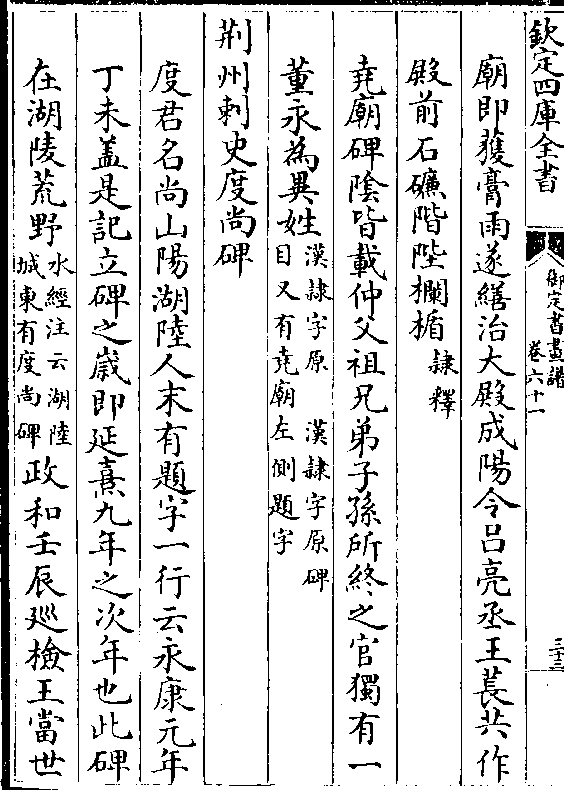 欽定四庫全書
御定書畫譜
卷六十一
三十三
廟即獲膏雨遂繕治大殿成陽令吕亮丞王萇共作
殿前石礛階陛欄楯隸釋
堯廟碑隂皆載仲父祖兄弟子孫所終之官獨有一
董永為異姓漢隸字原 漢隸字原碑
目又有堯廟左側題字
荆州刺史度尚碑
度君名尚山陽湖陸人末有題字一行云永康元年
丁未盖是記立碑之嵗即延熹九年之次年也此碑
在湖陵荒野水經注云湖陸
城東有度尚碑政和壬辰廵檢王當世